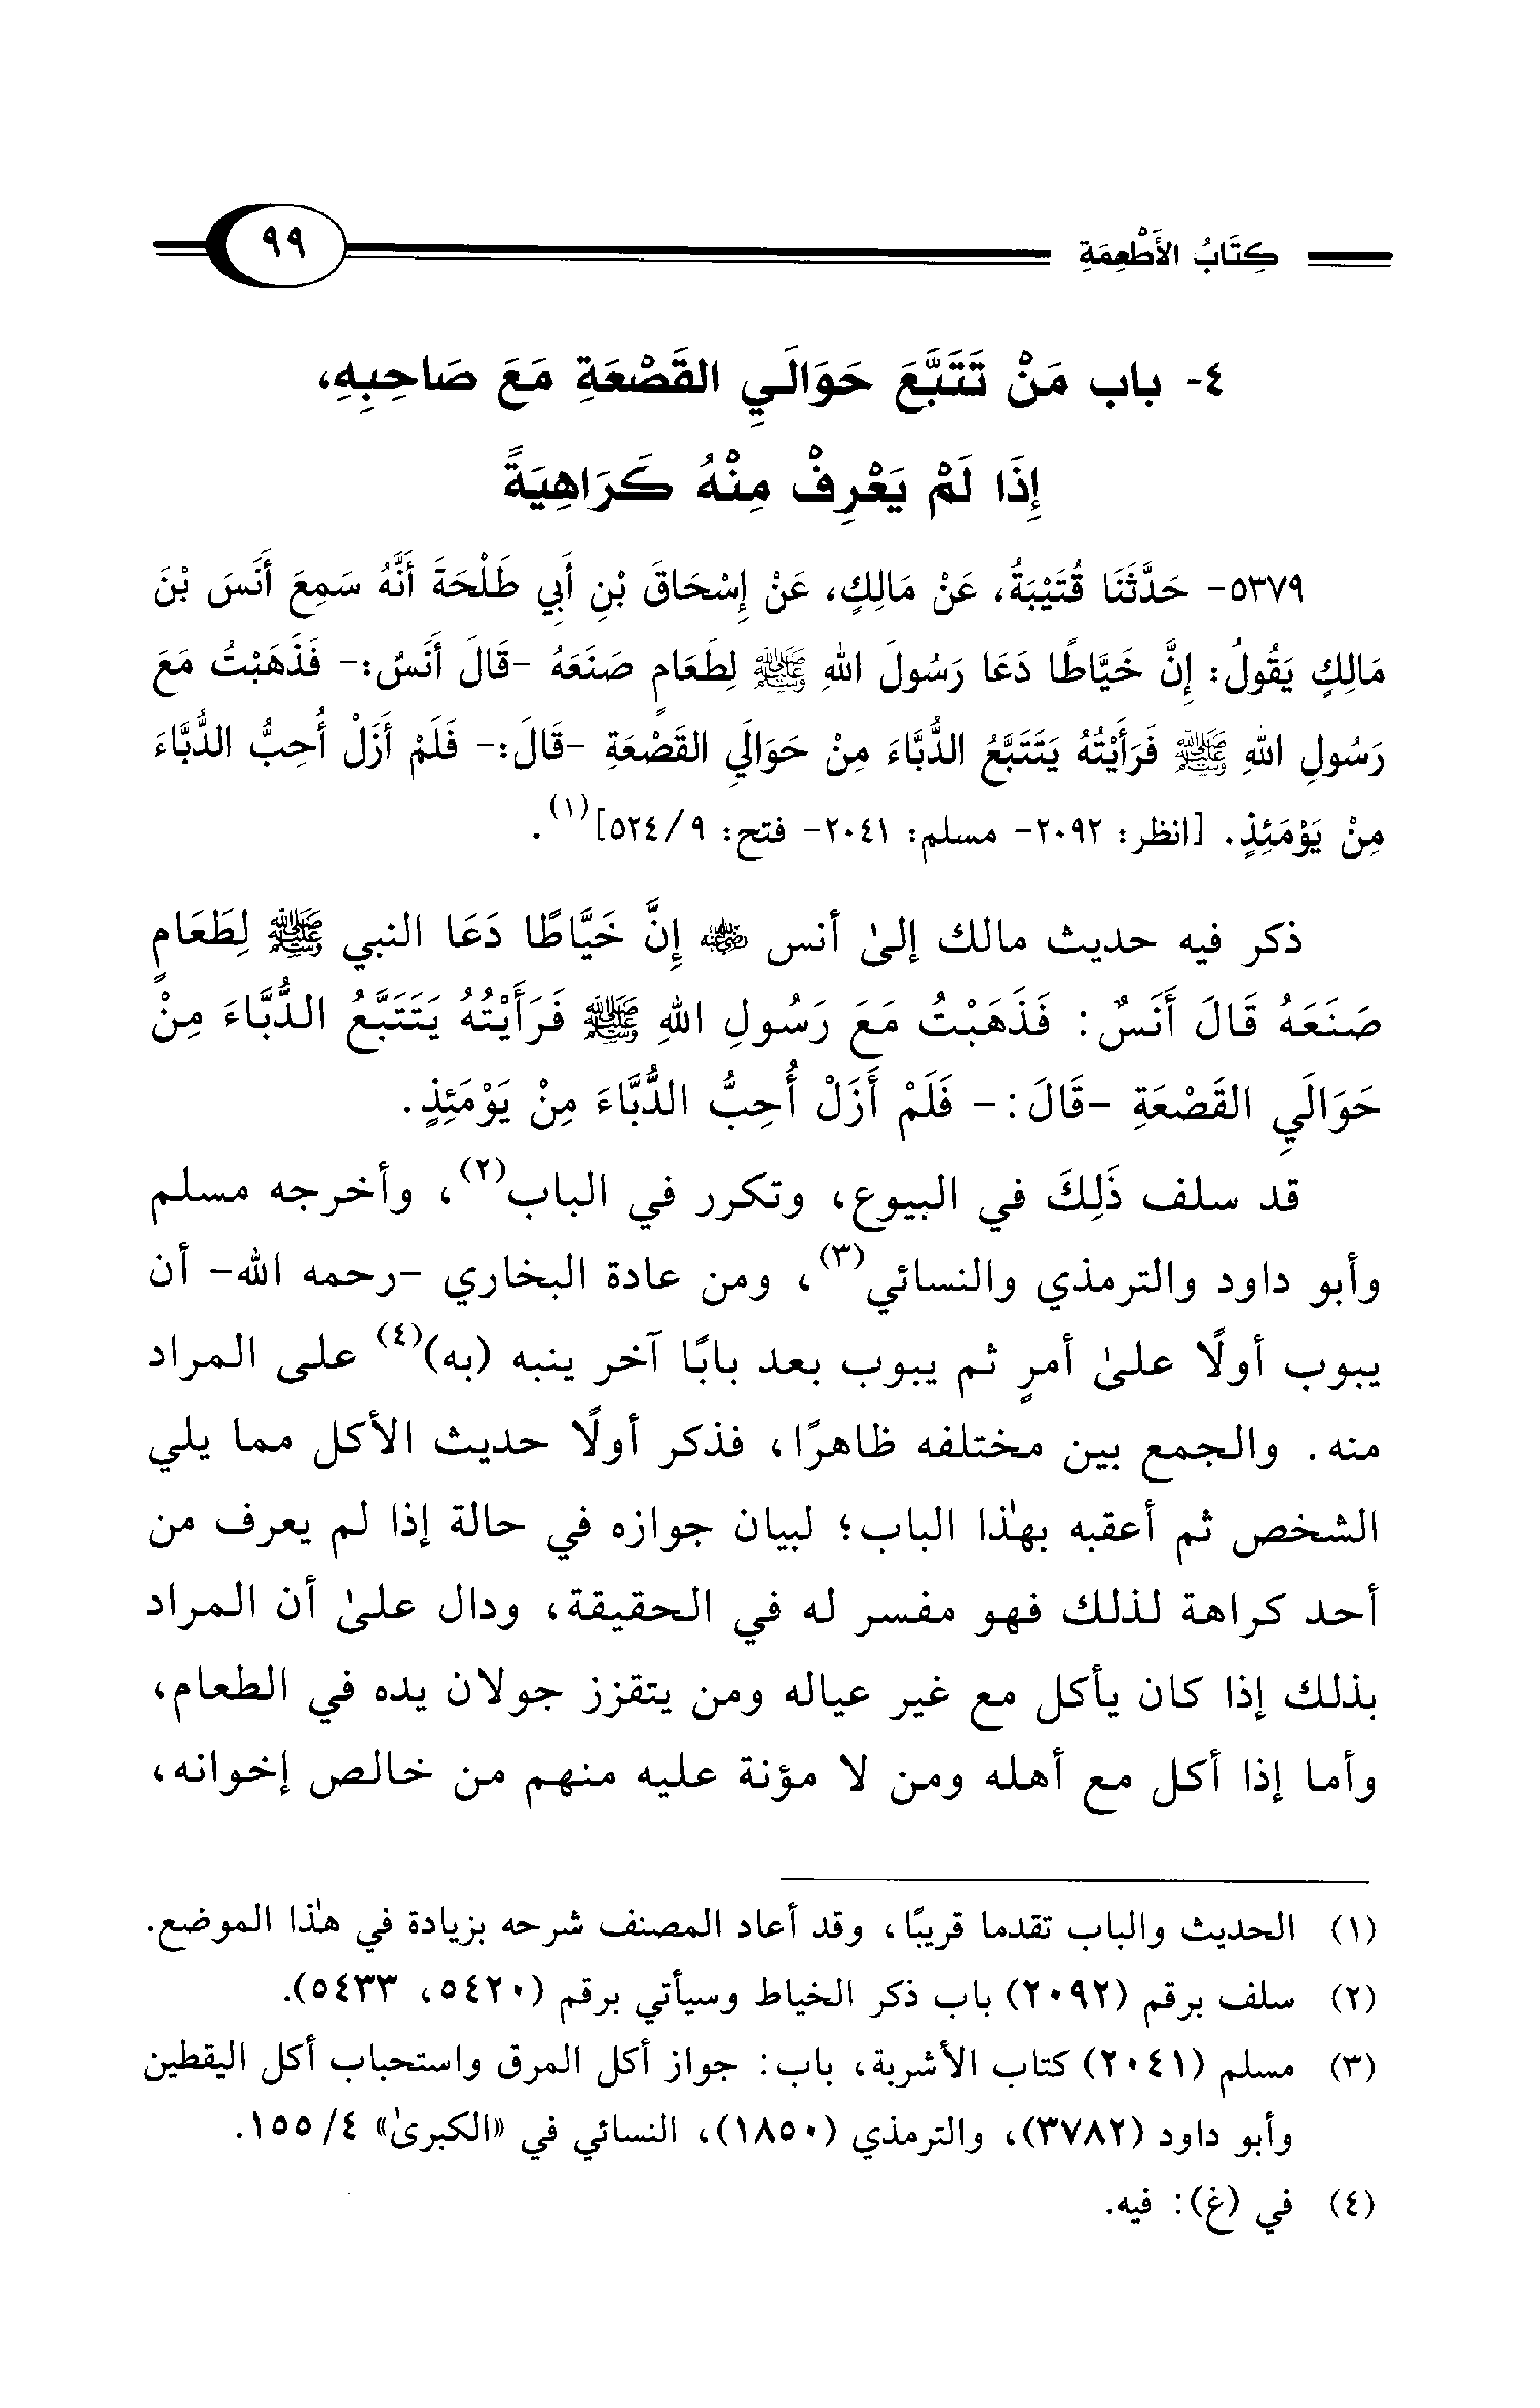 كِتَابُ الأَطْعِمَةِ ٩٩
٤- باب مَنْ تَتَبَّعَ حَوَالَيِ القَصْعَةِ مَعَ صَاحِبِهِ،
إِذَا لَمْ يَعْرِفْ مِنْهُ كَرَاهِيَةً
٥٣٧٩- حَدَّثَنَا قُتَيْبَةُ، عَنْ مَالِكٍ، عَنْ إِسْحَاقَ بْنِ أَبِي طَلْحَةَ أَنَّهُ سَمِعَ أَنَسَ بْنَ
مَالِكٍ يَقُولُ: إِنَّ خَيَّاطًا دَعَا رَسُولَ اللهِ ﷺ لِطَعَامٍ صَنَعَهُ -قَالَ أَنَسٌ:- فَذَهَبْتُ مَعَ
رَسُولِ اللهِ ﷺ فَرَأَيْتُهُ يَتَتَبَّعُ الدُّبَّاءَ مِنْ حَوَالَيِ القَصْعَةِ -قَالَ:- فَلَمْ أَزَلْ أُحِبُّ الدُّبَّاءَ
مِنْ يَوْمَئِذٍ. [انظر: ٢٠٩٢- مسلم: ٢٠٤١- فتح: ٩/ ٥٢٤](١).
ذكر فيه حديث مالك إلىٰ أنس ﵁ إِنَّ خَيَّاطًا دَعَا النبي ﷺ لِطَعَامٍ
صَنَعَهُ قَالَ أَنَسٌ: فَذَهَبْتُ مَعَ رَسُولِ اللهِ ﷺ فَرَأَيْتُهُ يَتَتَبَّعُ الدُّبَّاءَ مِنْ
حَوَالَيِ القَصْعَةِ -قَالَ:- فَلَمْ أَزَلْ أُحِبُّ الدُّبَّاءَ مِنْ يَوْمَئِذٍ.
قد سلف ذَلِكَ في البيوع، وتكرر في الباب(٢)، وأخرجه مسلم
وأبو داود والترمذي والنسائي(٣)، ومن عادة البخاري -رحمه الله- أن
يبوب أولًا علىٰ أمرٍ ثم يبوب بعد بابًا آخر ينبه (به)(٤) على المراد
منه. والجمع بين مختلفه ظاهرًا، فذكر أولًا حديث الأكل مما يلي
الشخص ثم أعقبه بهٰذا الباب؛ لبيان جوازه في حالة إذا لم يعرف من
أحد كراهة لذلك فهو مفسر له في الحقيقة، ودال علىٰ أن المراد
بذلك إذا كان يأكل مع غير عياله ومن يتقزز جولان يده في الطعام،
وأما إذا أكل مع أهله ومن لا مؤنة عليه منهم من خالص إخوانه،
(١) الحديث والباب تقدما قريبًا، وقد أعاد المصنف شرحه بزيادة في هٰذا الموضع.
(٢) سلف برقم (٢٠٩٢) باب ذكر الخياط وسيأتي برقم (٥٤٢٠، ٥٤٣٣).
(٣) مسلم (٢٠٤١) كتاب الأشربة، باب: جواز أكل المرق واستحباب أكل اليقطين
وأبو داود (٣٧٨٢)، والترمذي (١٨٥٠)، النسائي في «الكبرىٰ» ٤/ ١٥٥.
(٤) في (غ): فيه.